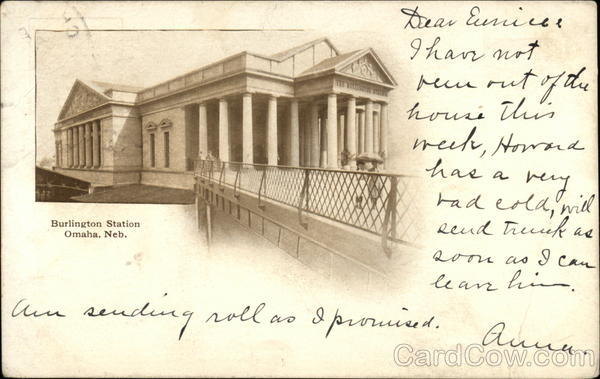 Dear Eunice:
I have not
been out of the
house this
week, Howard
has a very
bad cold, will
send trunk as
soon as I can
leave him.
Am sending roll as I promised.
Anna.
Burlington Station
Omaha, Neb.
CardCow.com